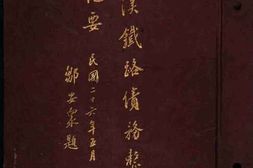 漢鐵路債務整
紀要
民國二十六年五月
鄒安衆題